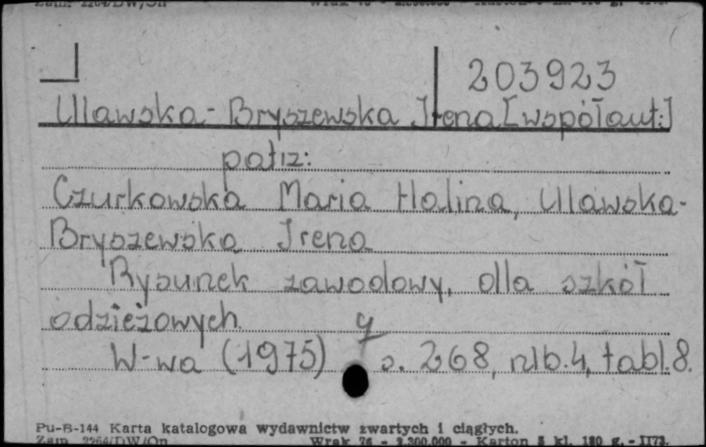 203923
Ulawska-Bryszewska Irena [współaut.]
patrz:
Czurkowska Maria Halina, Ulawska-
Bryszewska Irena
Rysunek zawodowy, dla szkół
odzieżowych
W-wa (1975) s. 268, nlb. 4, tabl. 8.
Pu-B-144 Karta katalogowa wydawnictw zwartych i ciągłych.
Zam. 2264/DW/On Wrak 76 - 3.300.000 - Karton 3 kl. 180 g. - II73.